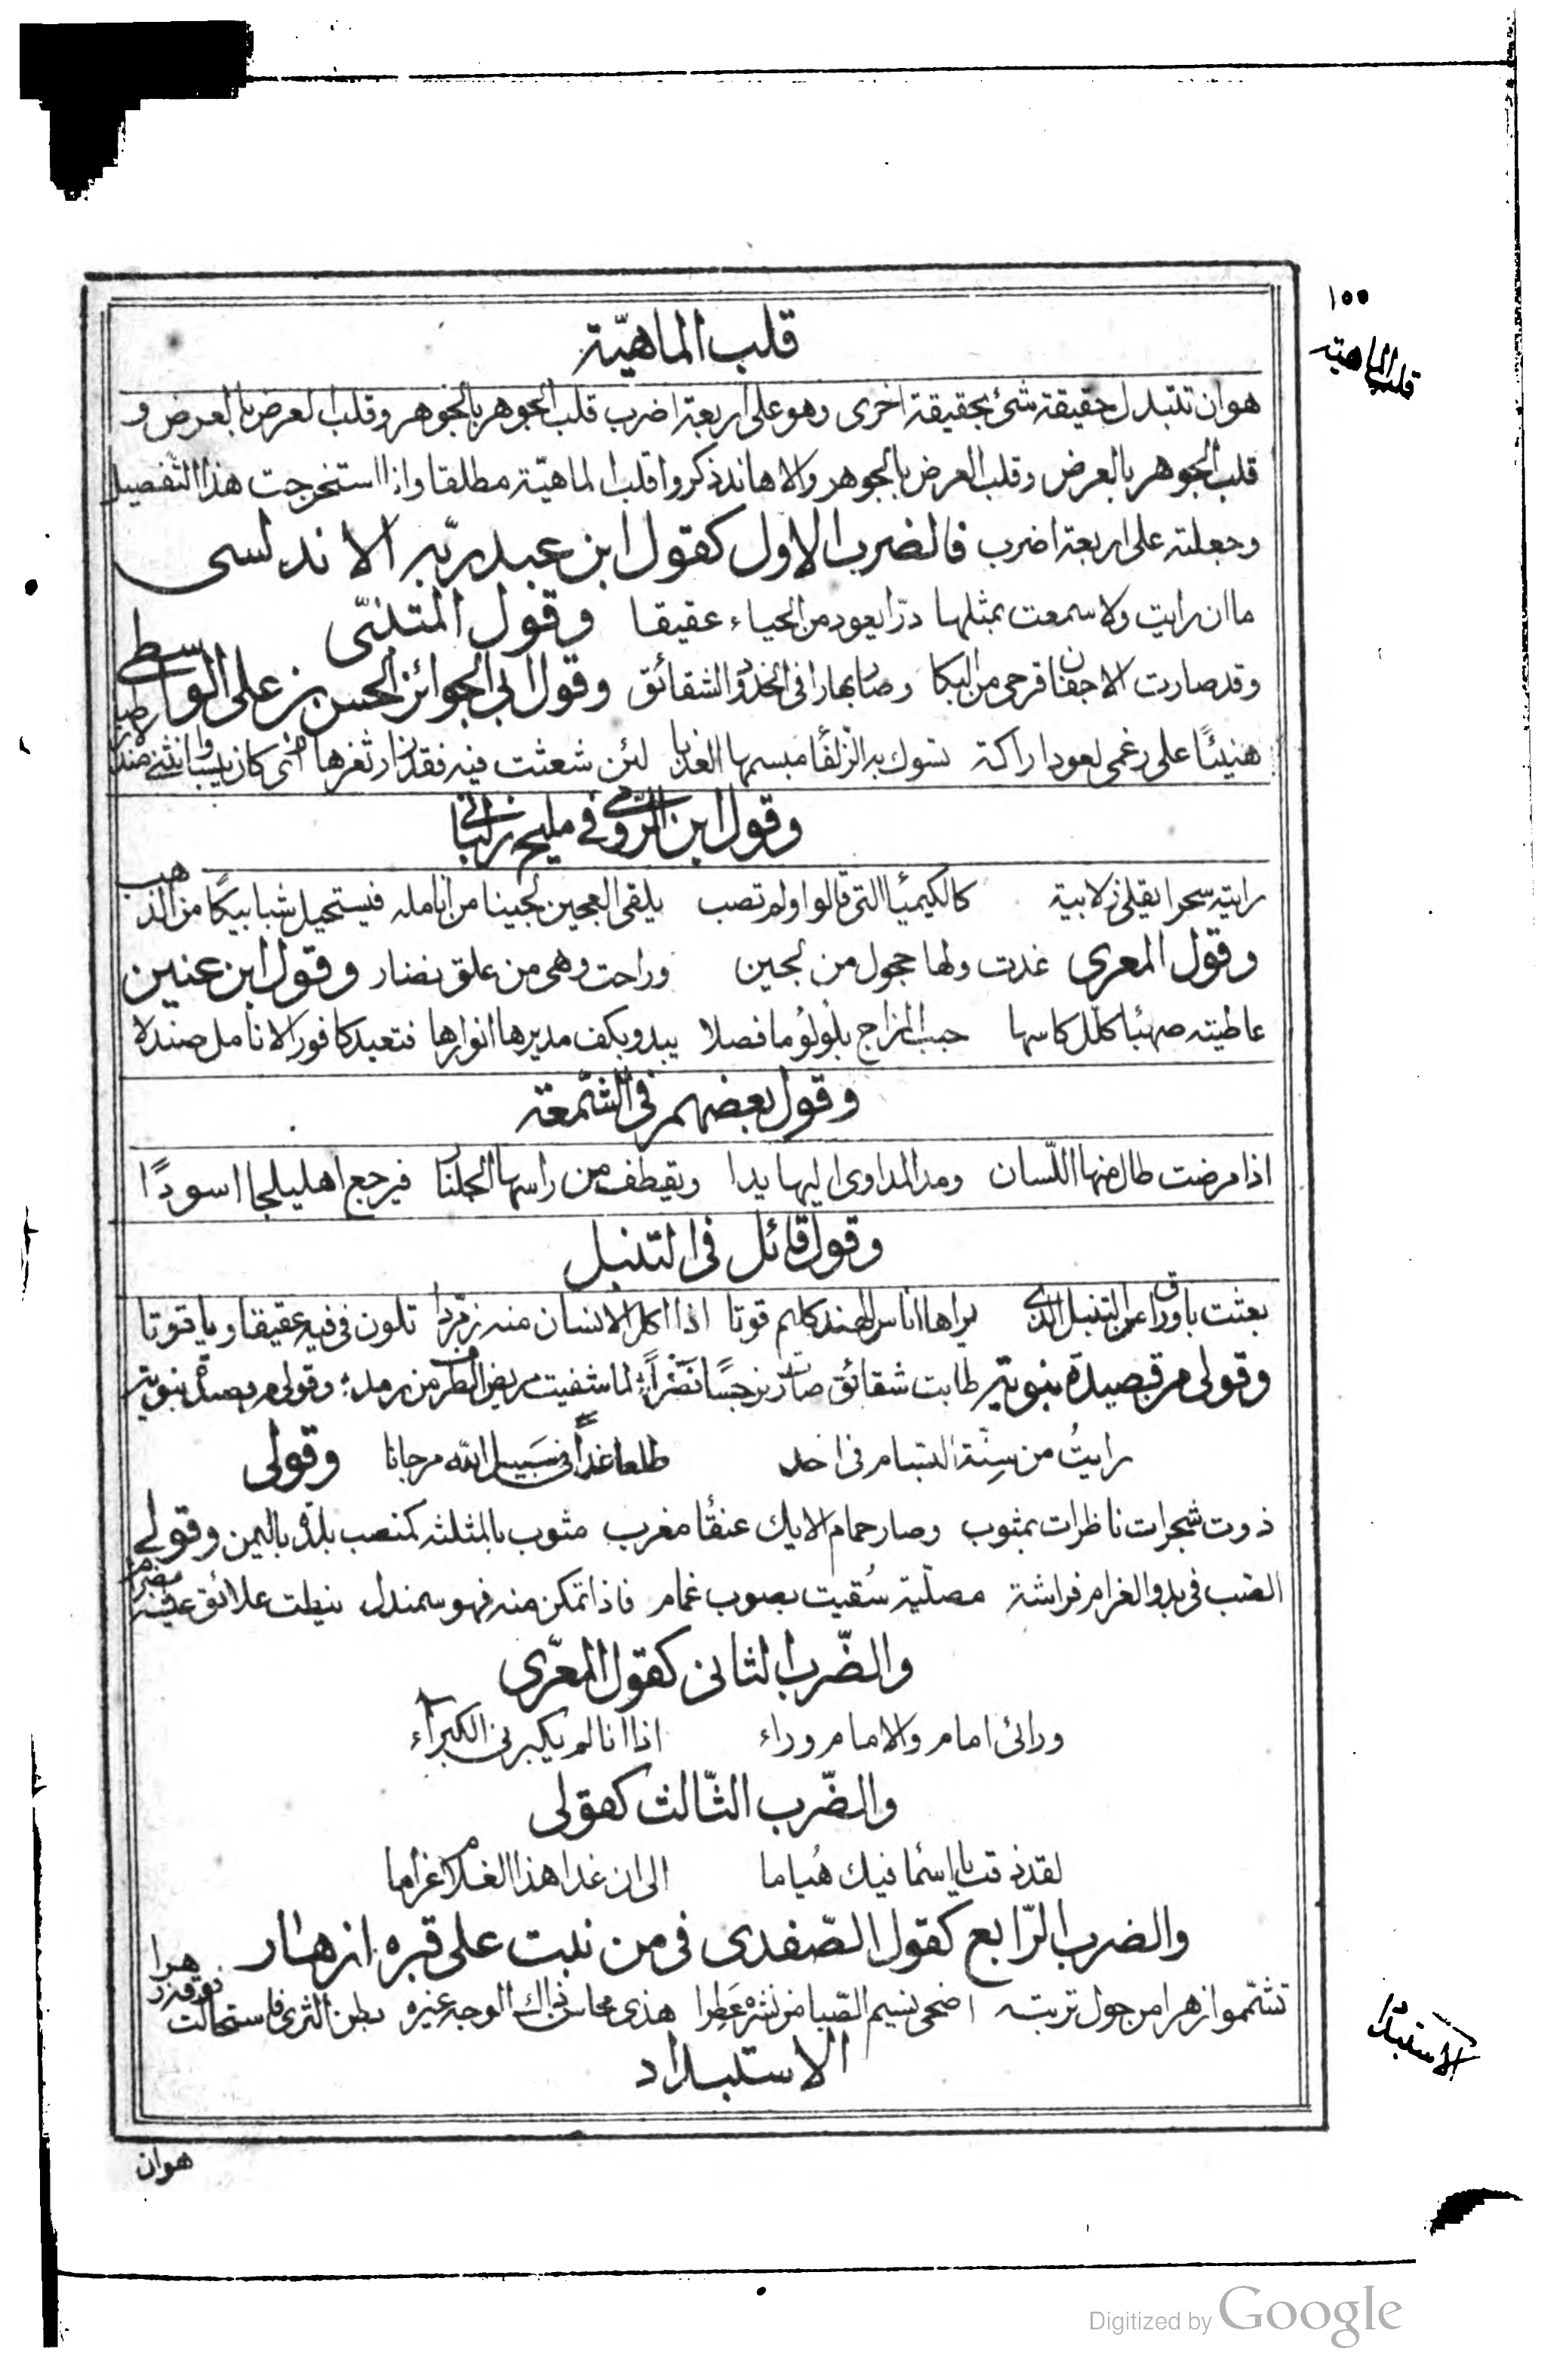 ١٥٥
قلب الماهية
قلب الماهيّة
هو ان تتبدل حقيقة شئ بحقيقة اخرى وهو على اربعة اضرب قلب الجوهر بالجوهر وقلب العرض بالعرض و
قلب الجوهر بالعرض وقلب العرض بالجوهر والاهاند ذكروا قلب الماهيّة مطلقا وانا استخرجت هذا التّفصيل
وجعلته على اربعة اضرب فالضرب الاول كقول ابن عبد ربّه الاندلسى
ما ان رايت ولا سمعت بمثلها درّا يعود من الحياء عقيقا وقول المتنبّى
وقد صارت الاجفان قرحى من البكا وصار بهارا فى الخدود الشقائق وقول ابى الجوائز الحسن بن على الواسطى
هنيئًا على رغمى لعود اراكة تسوك به الزّلفا مبسمها العذبا لئن شعثت فيه فقد زار ثغرها
وقول ابن الرّومى فى مليح زلبانى
رايته سحرا يقلى زلابية كالكيميا التى قالوا ولم تصب يلقى العجين لجينا من انامله فيستحيل شبابيكا من الذهب
وقول المعرى غدت ولها حجول من لجين وراحت وهى من علق نضار وقول ابن عنين
عاطيته صهبا كلّل كاسها حبب المزاج بلؤلؤ ما فصلا يبدو بكف مديرها انوارها فتعيد كافور الانامل صندلا
وقول بعضهم فى الشّمعة
اذا مرضت طال منها اللّسان ومد المداوى اليها يدا ويقطف من راسها الجلّنا فيرجع اهليلجا اسودًا
وقول قائل فى التنبل
بعثت باوراق من التنبل الذى يراها اناس الهند كلهم قوتا اذا اكل الانسان منه زمردا تلون فى فيه عقيقا وياقوتا
وقولى من قصيدة نبوية طابت شقائق صارت نرجسًا نَضْرًا لما شفيت مريض الطرف من رمد وقولى من قصيدة نبوية
رايتُ من سِنّة البسّام فى احد طلعا غدا فى سَبيل الله مرجانا وقولى
ذوت شجرات ناظرات بمثوب وصار حمام الايك عنقا مغرب مثوب بالمثلثه كمنصب بلدة باليمن وقولى
الصّب فى بدو الغرام فراشة مصليّة سُقيت بصوب غمام فاذا تمكن منه فهو سمندل نيطت علائق عيشه
والضّرب الثانى كقول المعرّى
ورائى امام والامام وراء اذا انا لم يكبرنى الكبراء
والضّرب الثّالث كقولى
لقد ذقت يا اسما فيك هُياما الى ان غدا هذا الغلام غراما
والضرب الرّابع كقول الصّفدى فى من نبت على قبره ازهار
تشمّموا زهرا من حول تربته اضحى نسيم الصّبا من نشره عَطِرا هذى محاسن ذاك الوجه غيره بطن الثرى فاستحالت فوقه زهرا
الاستبداد
الاستبداد
هو ان
Digitized by Google